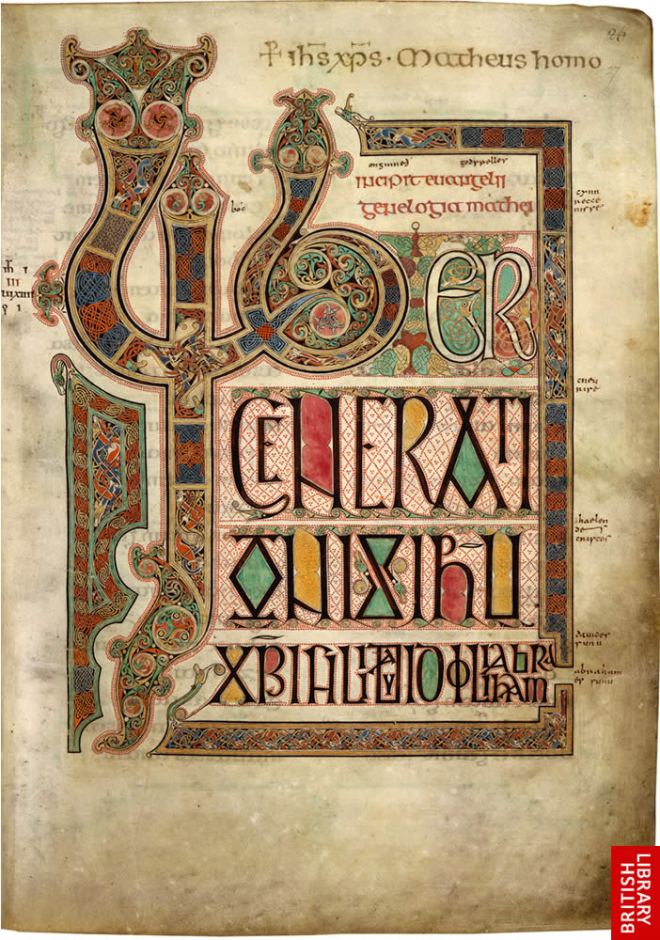 + ihs xps · Matheus homo
26
incipit euangelii
genelogia mathei
LIBER
GENERATI
ONIS IHU
XPI FILII DAUID FILII ABRAHAM
BRITISH
LIBRARY